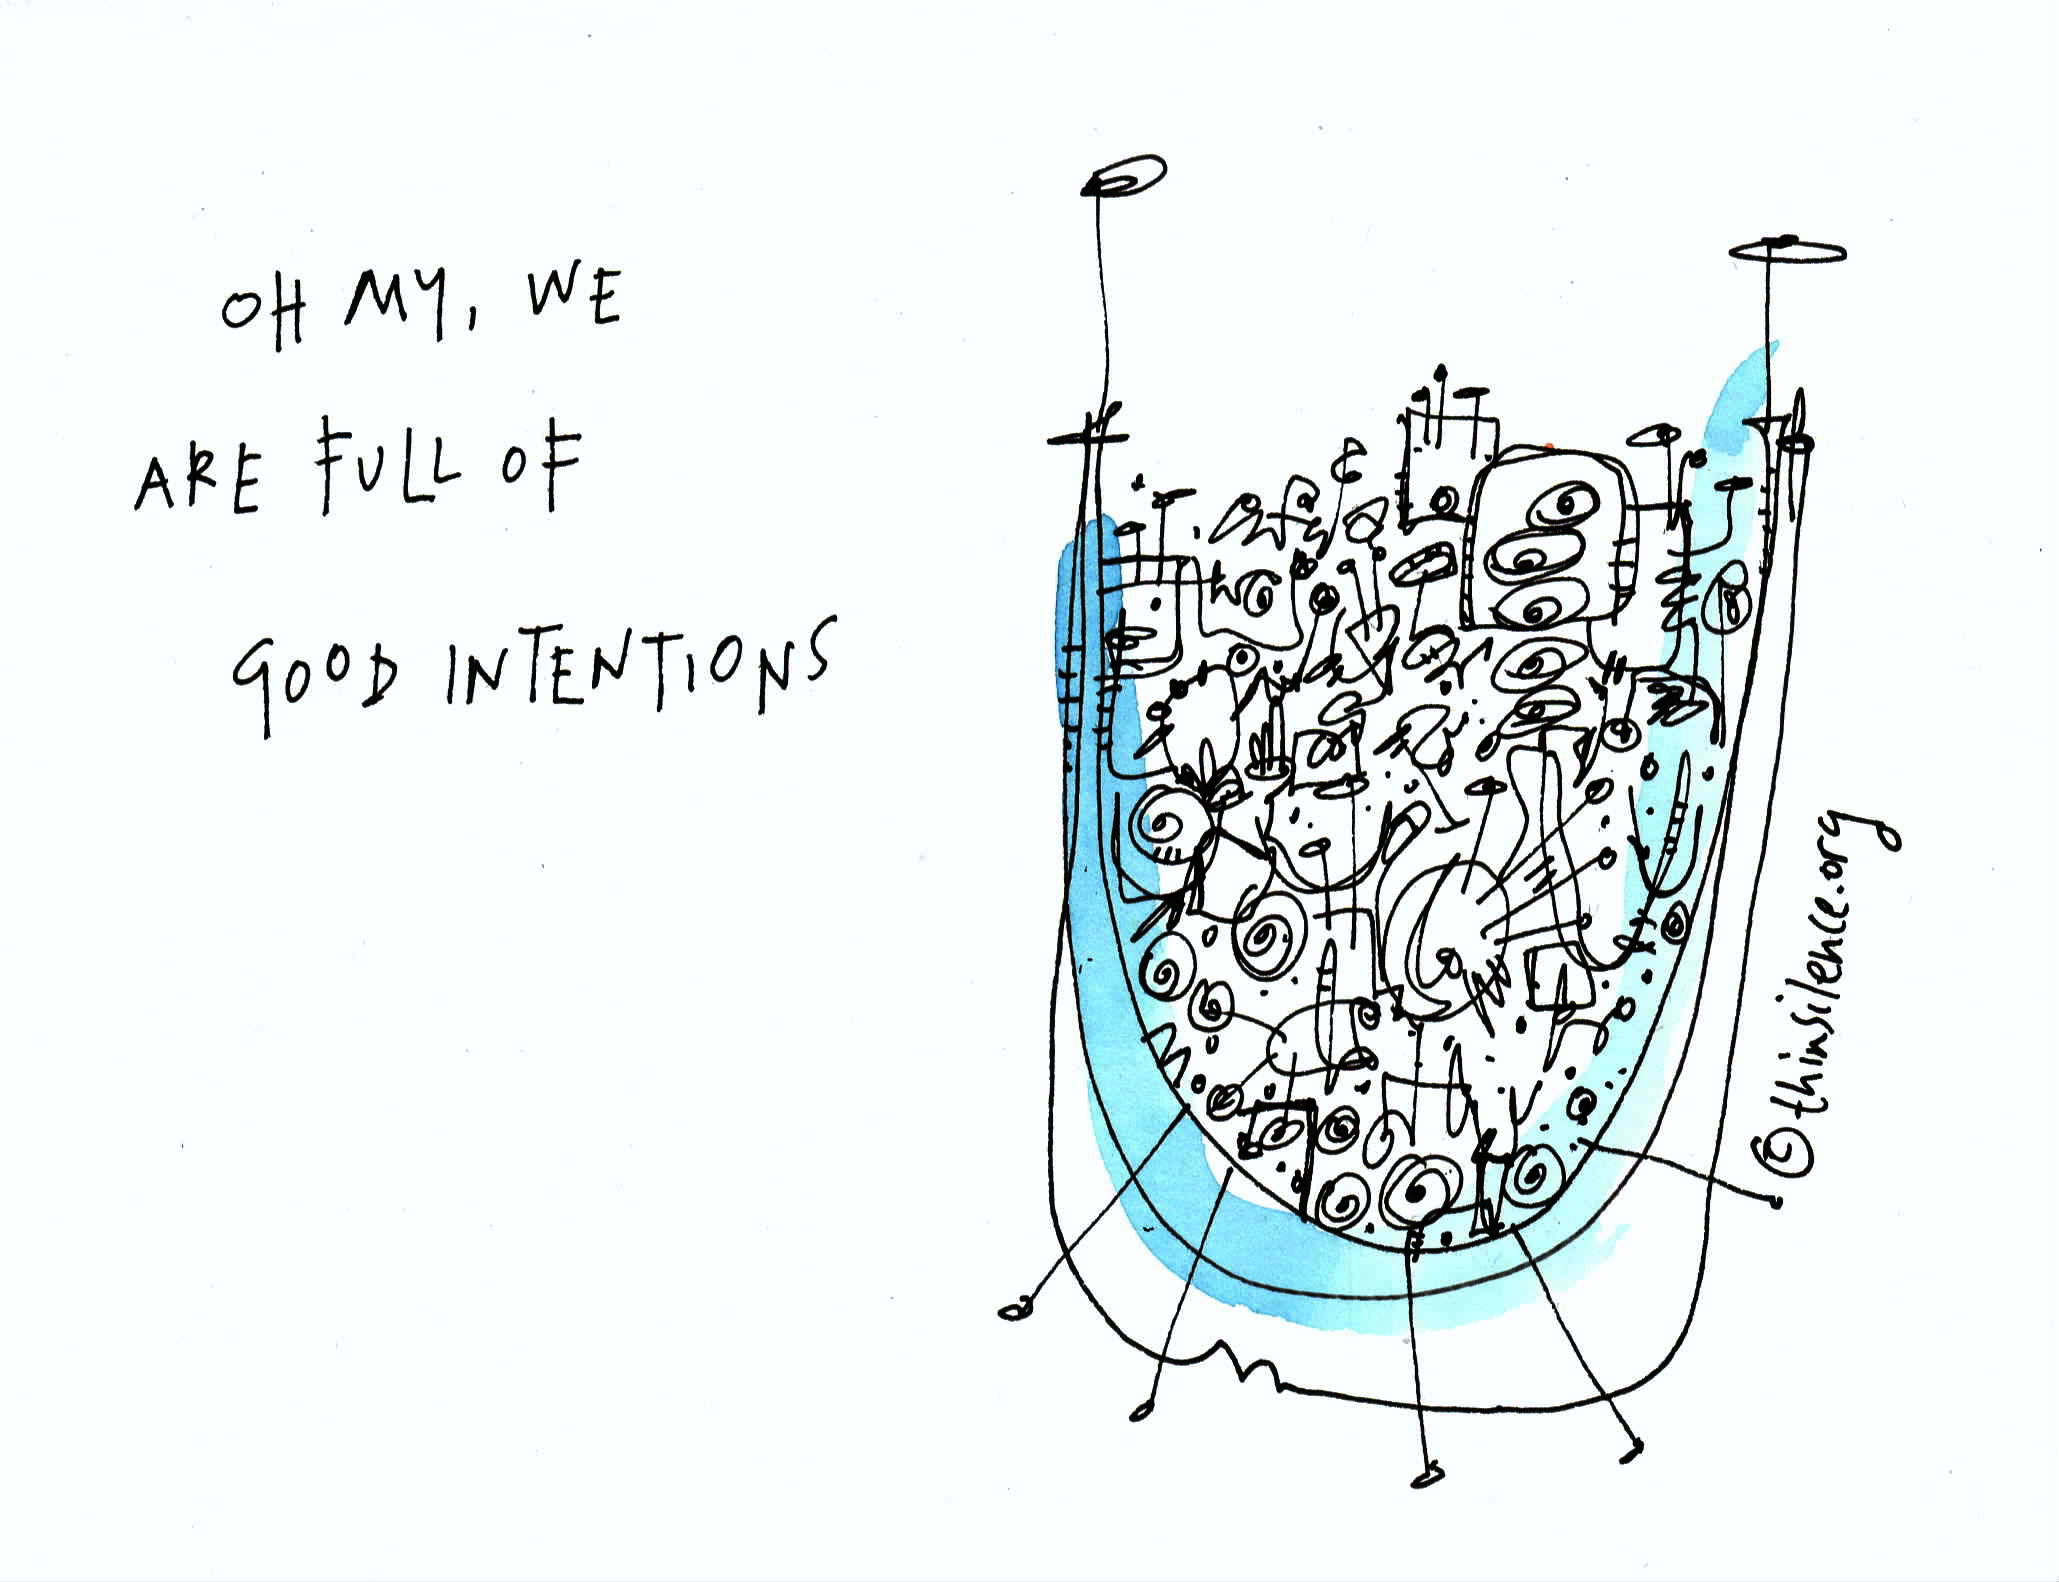 OH MY, WE
ARE FULL OF
GOOD INTENTIONS
©thinsilence.org